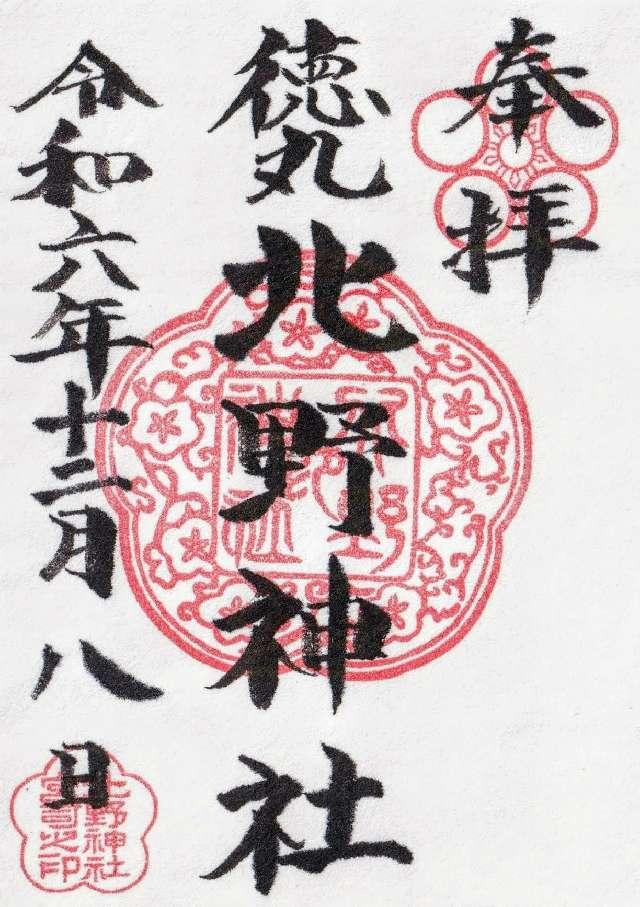 奉拝
徳丸北野神社
令和六年十二月八日
北野神社
宮司之印